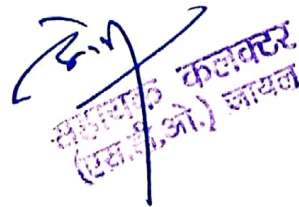 सहायक कलक्टर
(एस.डी.ओ.) जायल